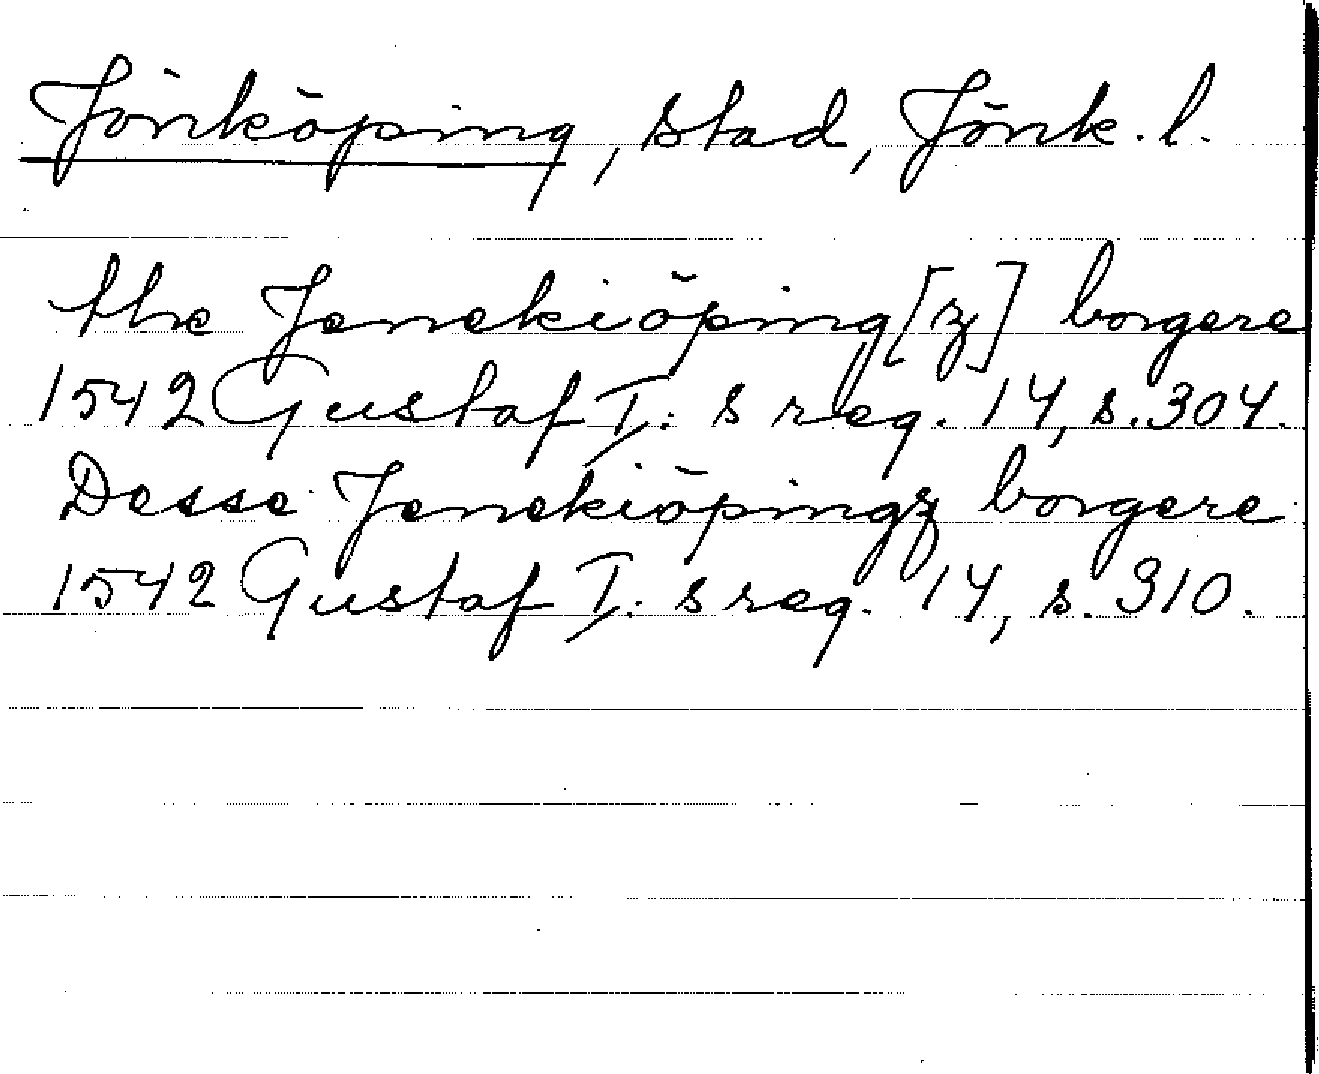 Jönköping, stad, Jönk. l.
the Jenekiöping[z] borgere
1542 Gustaf I:s reg. 14, s. 304.
Desse Jenekiöpingz borgere
1542 Gustaf I:s reg. 14, s. 310.